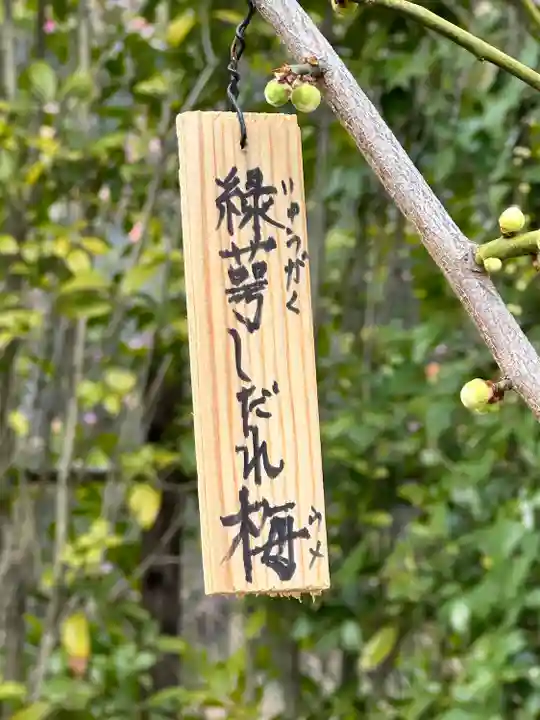 緑萼しだれ梅
りゅうがく
ウメ